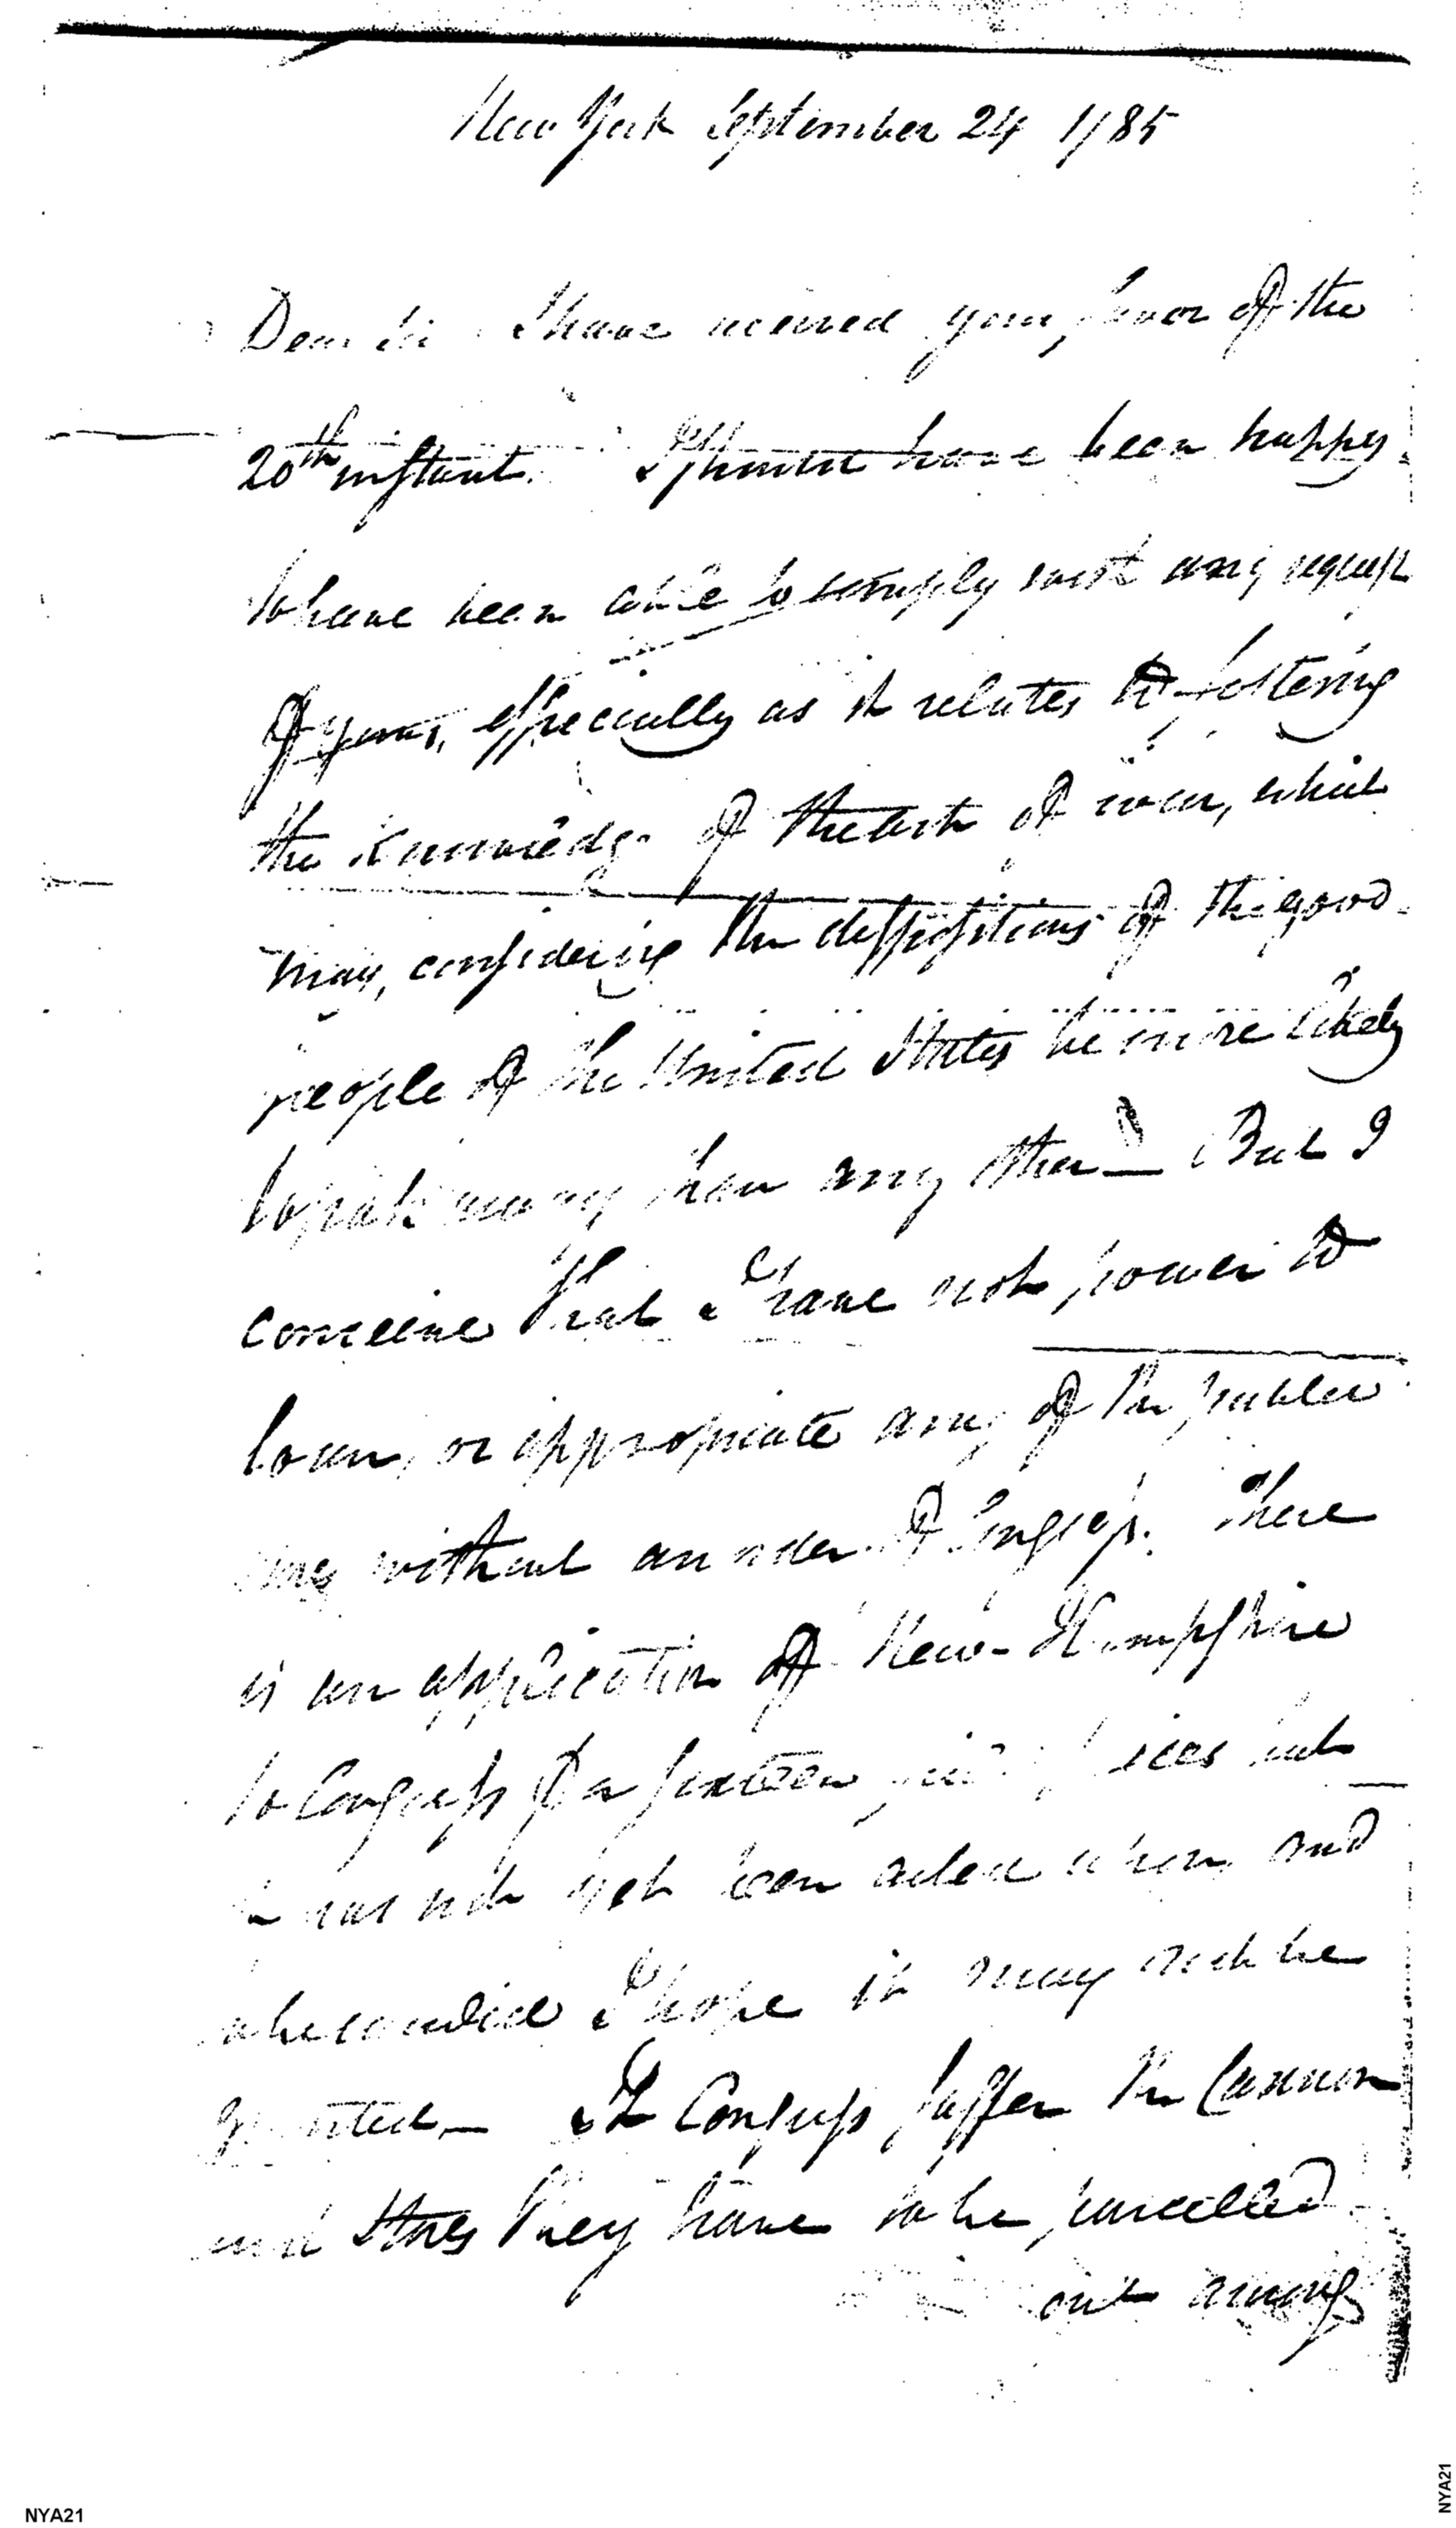 New York September 24 1785
Dear Sir I have received your favor of the
20th instant. I should have been happy
to have been able to comply with any request
of yours, especially as it relates to fostering
the knowledge of the art of war, which
may, considering the dispositions of the good
people of the United States be more likely
to any than any other — But I
conceive that I have not power to
loan, or appropriate any of the public
without an order of Congress. There
is an application of New-Hampshire
to Congress for sixteen pieces but
it has not yet been acted upon, and
to be candid I hope it may not be
granted — If Congress suffer the Cannon
and Stores they have to be parcelled
out among
NYA21
NYA21